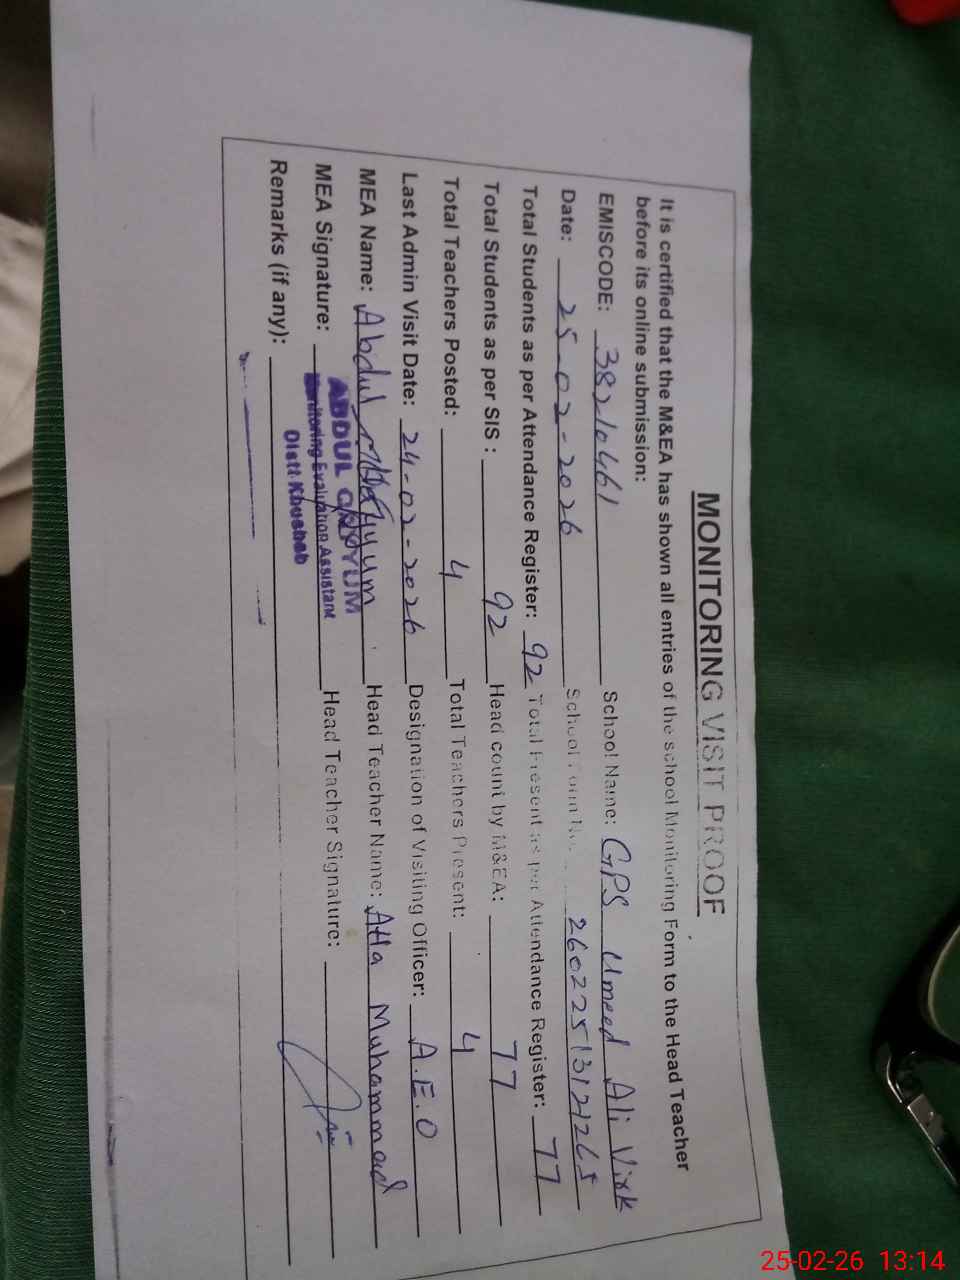 MONITORING VISIT PROOF
It is certified that the M&EA has shown all entries of the school Monitoring Form to the Head Teacher
before its online submission:
EMISCODE: 38210461 School Name: GPS Umeed Ali Virk
Date: 25-02-2026 School Form No. 260225131265
Total Students as per Attendance Register: 92 Total Present as per Attendance Register: 77
Total Students as per SIS : 92 Head count by M&EA: 77
Total Teachers Posted: 4 Total Teachers Present: 4
Last Admin Visit Date: 24-02-2026 Designation of Visiting Officer: A.E.O
MEA Name: Abdul Qayyum Head Teacher Name: Atta Muhammad
MEA Signature: Head Teacher Signature:
ABDUL QAYYUM
Monitoring Evaluation Assistant
Distt Khushab
Remarks (if any):
25-02-26 13:14